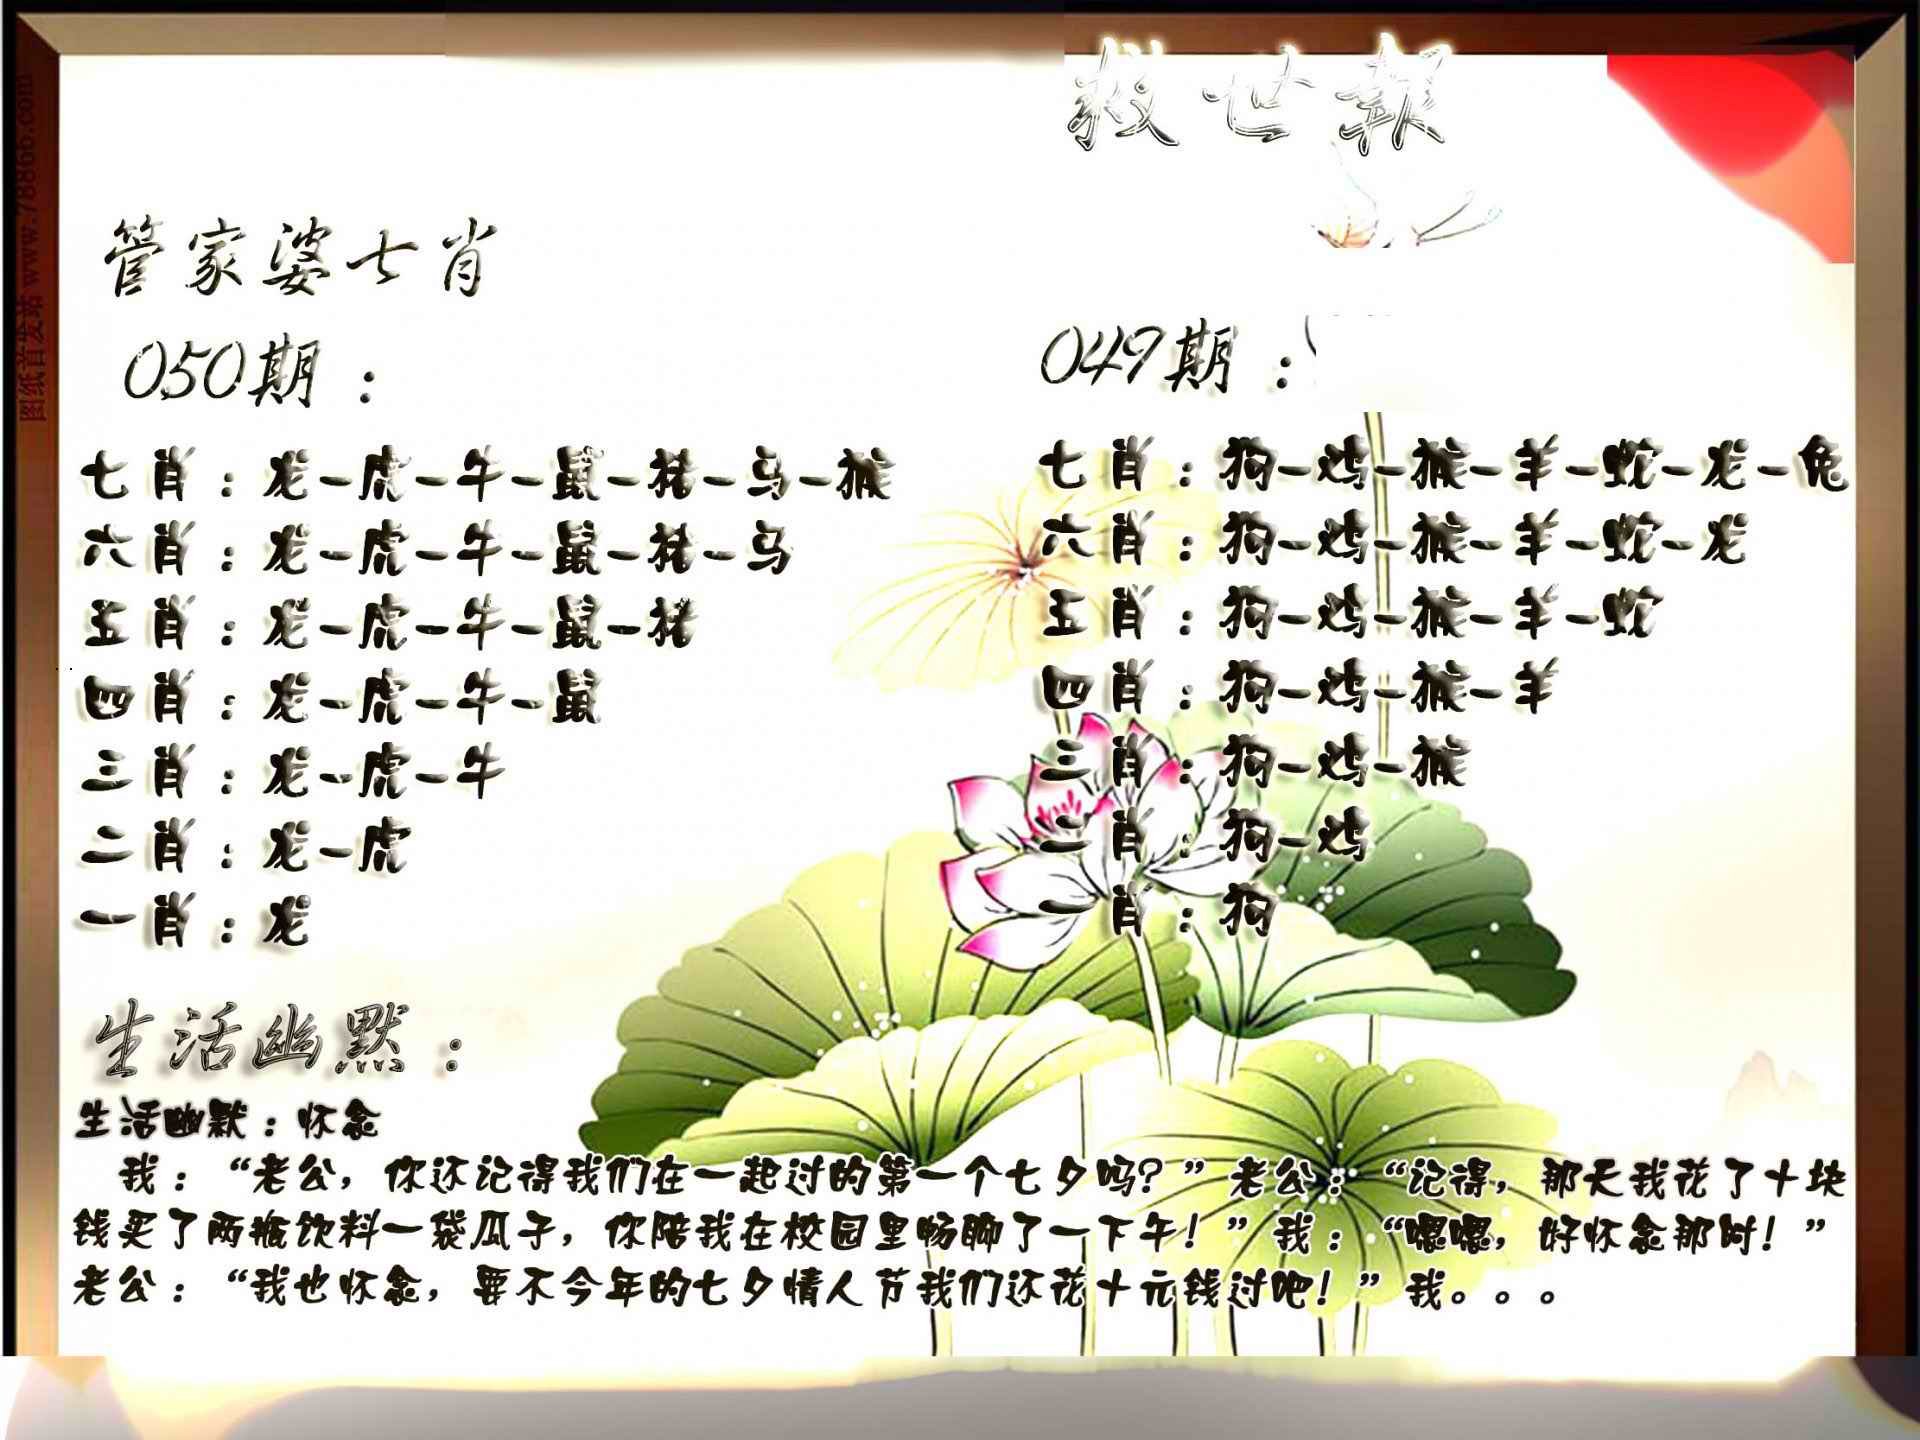 救世報
管家婆七肖
050期：
七肖：龙-虎-牛-鼠-猪-马-猴
六肖：龙-虎-牛-鼠-猪-马
五肖：龙-虎-牛-鼠-猪
四肖：龙-虎-牛-鼠
三肖：龙-虎-牛
二肖：龙-虎
一肖：龙
049期：
七肖：狗-鸡-猴-羊-蛇-龙-兔
六肖：狗-鸡-猴-羊-蛇-龙
五肖：狗-鸡-猴-羊-蛇
四肖：狗-鸡-猴-羊
三肖：狗-鸡-猴
二肖：狗-鸡
一肖：狗
生活幽默：
生活幽默：怀念
我：“老公，你还记得我们在一起过的第一个七夕吗？”老公：“记得，那天我花了十块
钱买了两瓶饮料一袋瓜子，你陪我在校园里畅聊了一下午！”我：“嗯嗯，好怀念那时！”
老公：“我也怀念，要不今年的七夕情人节我们还花十元钱过吧！”我。。。
图纸首发站 www.78866.com